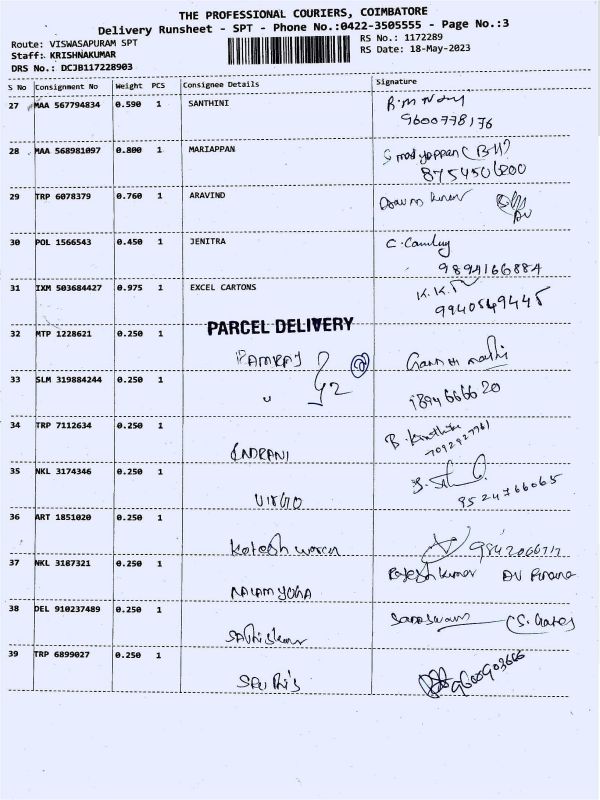 THE PROFESSIONAL COURIERS, COIMBATORE
Delivery Runsheet - SPT - Phone No.:0422-3505555 - Page No.:3
Route: VISWASAPURAM SPT
RS No.: 1172289
Staff: KRISHNAKUMAR
RS Date: 18-May-2023
DRS No.: DCJB117228903
S No Consignment No Weight PCS Consignee Details Signature
27 MAA 567794834 0.590 1 SANTHINI
9600778176
28 MAA 568981097 0.800 1 MARIAPPAN
8754506800
29 TRP 6078379 0.760 1 ARAVIND
30 POL 1566543 0.450 1 JENITRA
9894166884
31 IXM 503684427 0.975 1 EXCEL CARTONS K.K.
9940549445
PARCEL DELIVERY
32 MTP 1228621 0.250 1
RAMRAJ
33 SLM 319884244 0.250 1
34 TRP 7112634 0.250 1
INDRANI
7092927761
35 NKL 3174346 0.250 1
9524766065
36 ART 1851020 0.250 1
Koteshwaran
37 NKL 3187321 0.250 1 Rajeshkumar
NALAM YOGA
38 DEL 910237489 0.250 1
Sathiskumar
39 TRP 6899027 0.250 1
9600903666